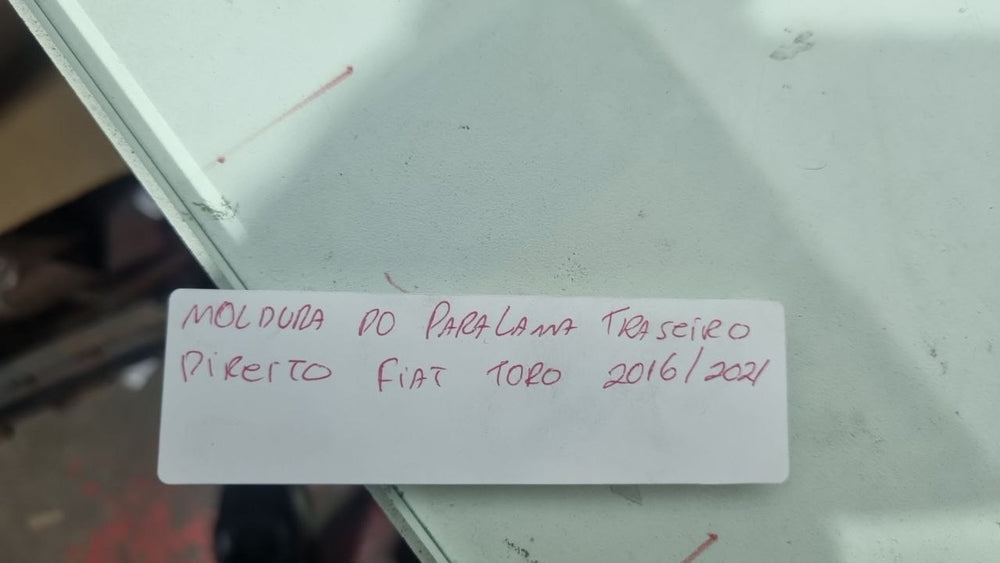 MOLDURA DO PARALAMA TRASEIRO
DIREITO FIAT TORO 2016/2021